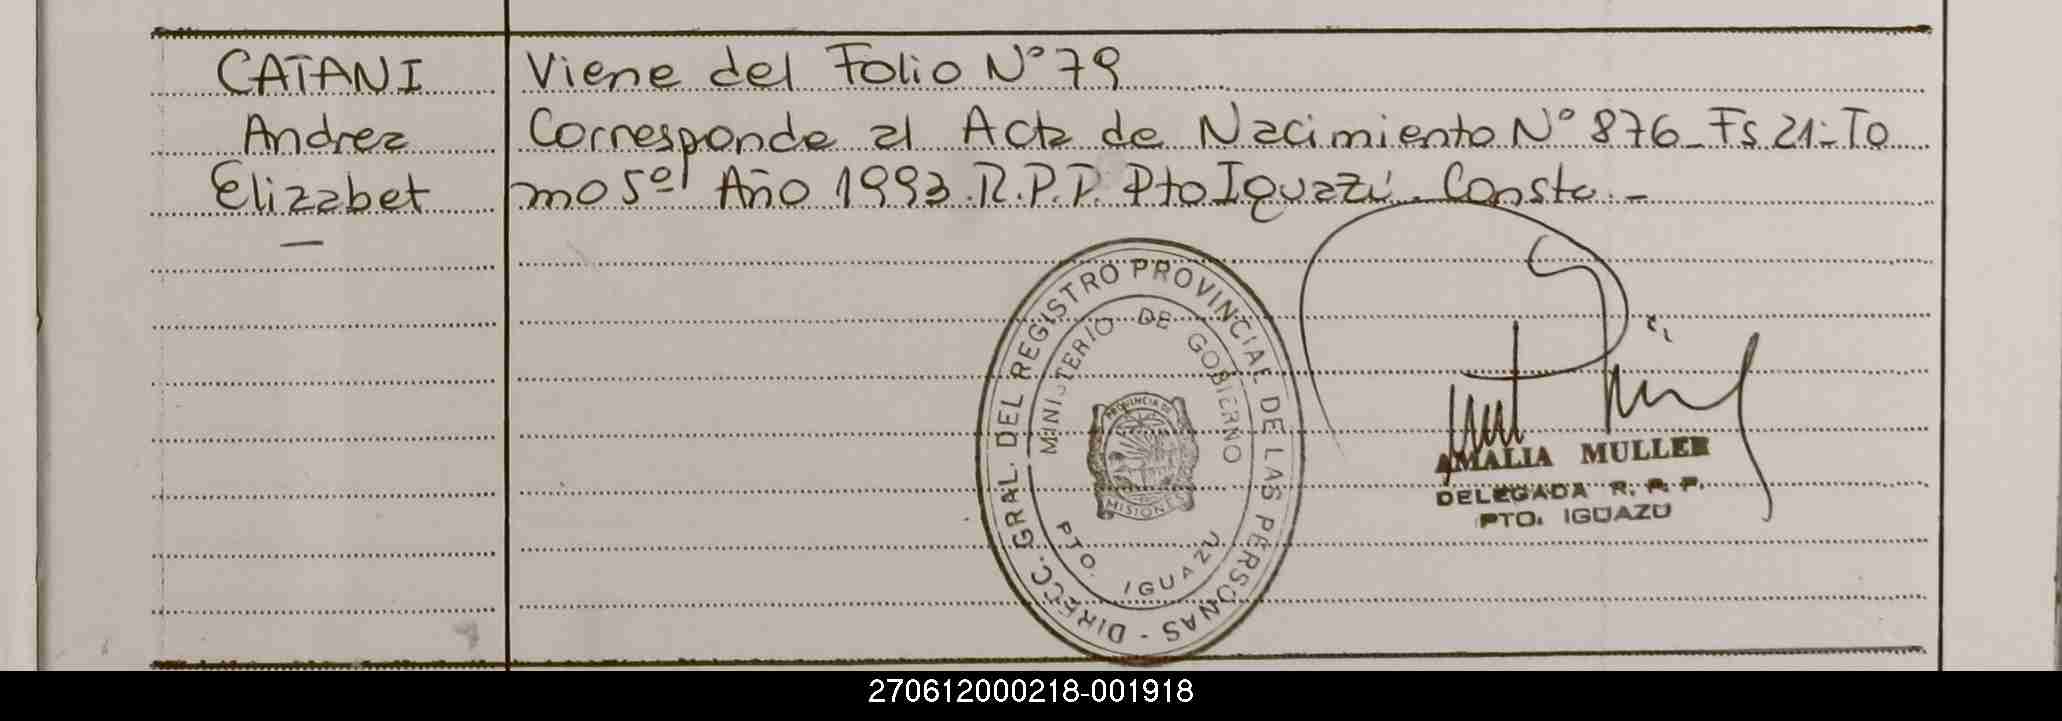 CATANI
Andrea
Elizabet
—
Viene del Folio N° 79
Corresponde al Acta de Nacimiento N° 876_Fs 21-To
mo 5º Año 1993.R.P.P. Pto Iguazú. Conste.-
DIRECC. GRAL. DEL REGISTRO PROVINCIAL DE LAS PERSONAS -
MINISTERIO DE GOBIERNO
PROVINCIA DE
MISIONES
PTO. IGUAZU
AMALIA MULLER
DELEGADA R. P. P.
PTO. IGUAZU
270612000218-001918